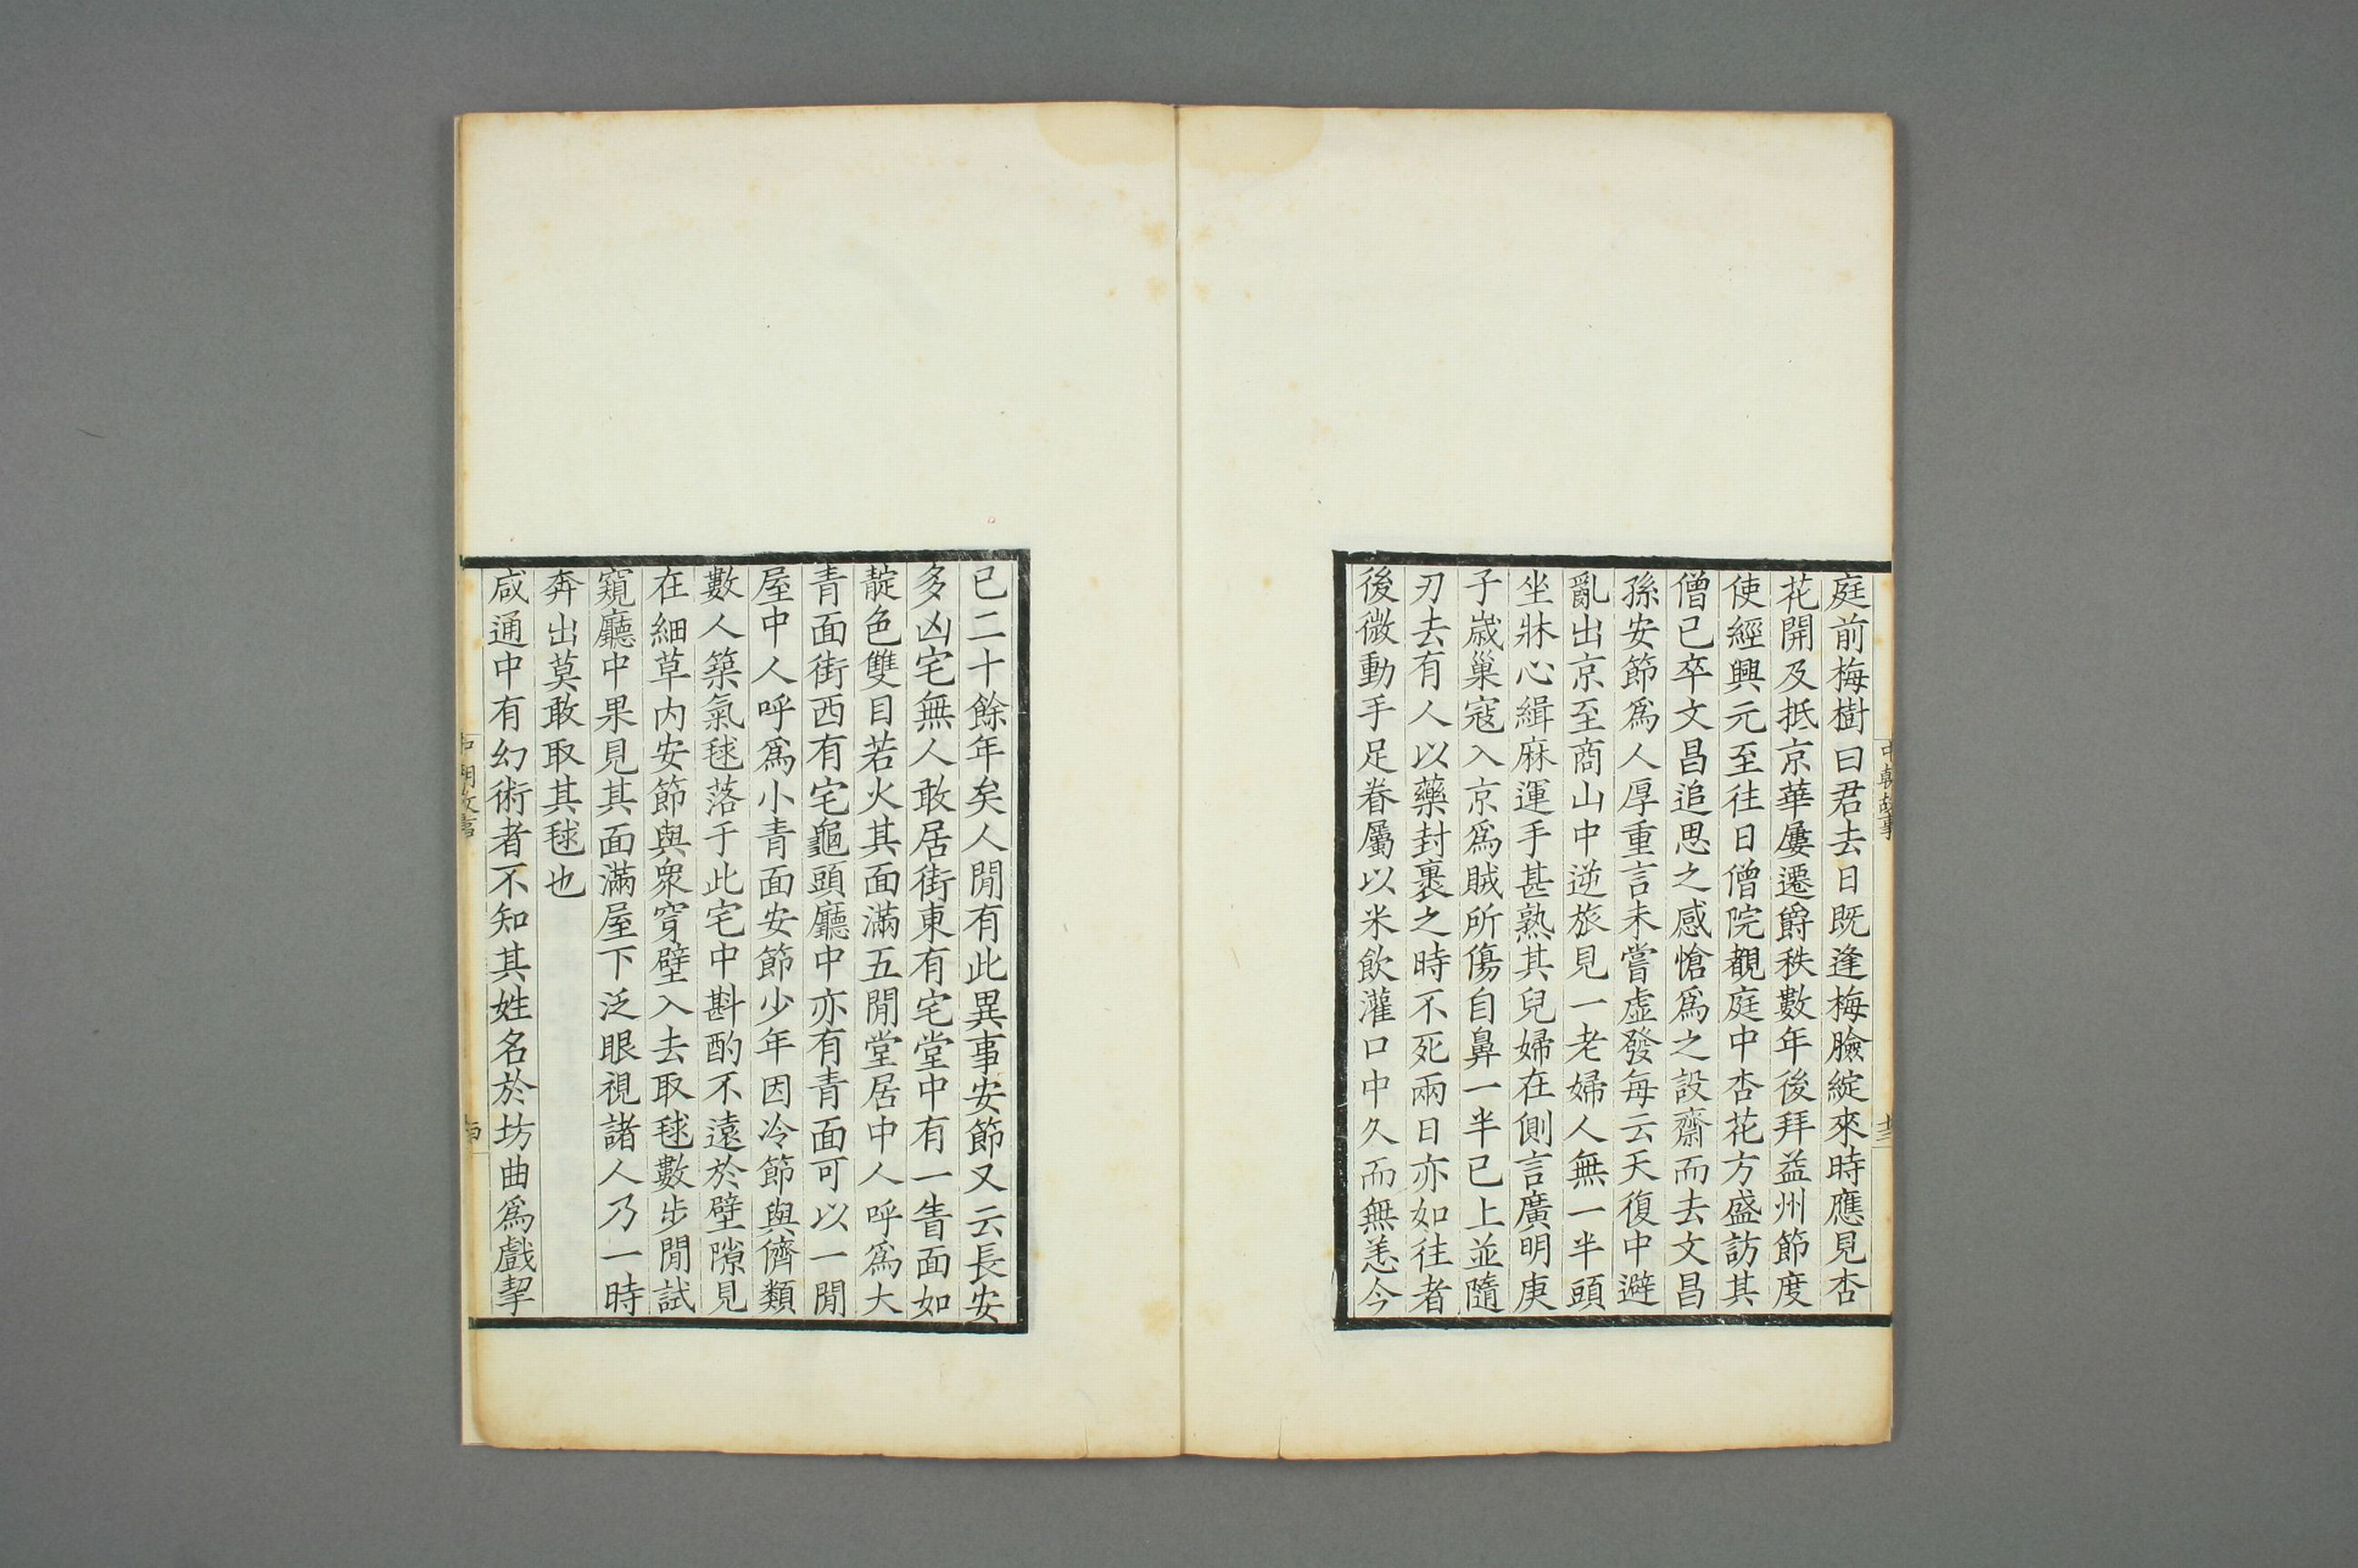 庭前梅樹曰君去日既逢梅臉綻來時應見杏
花開及抵京華屢遷爵秩數年後拜益州節度
使經興元至往日僧院覩庭中杏花方盛訪其
僧已卒文昌追思之感愴爲之設齋而去文昌
孫安節爲人厚重言未嘗虛發每云天復中避
亂出京至商山中逆旅見一老婦人無一半頭
坐牀心緝麻運手甚熟其兒婦在側言廣明庚
子歲巢寇入京爲賊所傷自鼻一半已上並隨
刃去有人以藥封裹之時不死兩日亦如往者
後微動手足眷屬以米飲灌口中久而無恙今
中朝故事
十三
已二十餘年矣人閒有此異事安節又云長安
多凶宅無人敢居街東有宅堂中有一靑面如
靛色雙目若火其面滿五閒堂居中人呼爲大
青面街西有宅龜頭廳中亦有青面可以一閒
屋中人呼爲小青面安節少年因冷節與儕類
數人築氣毬落于此宅中斟酌不遠於壁隙見
在細草内安節與衆穿壁入去取毬數步閒試
窺廳中果見其面滿屋下泛眼視諸人乃一時
奔出莫敢取其毬也
咸通中有幻術者不知其姓名於坊曲爲戲挈
中朝故事